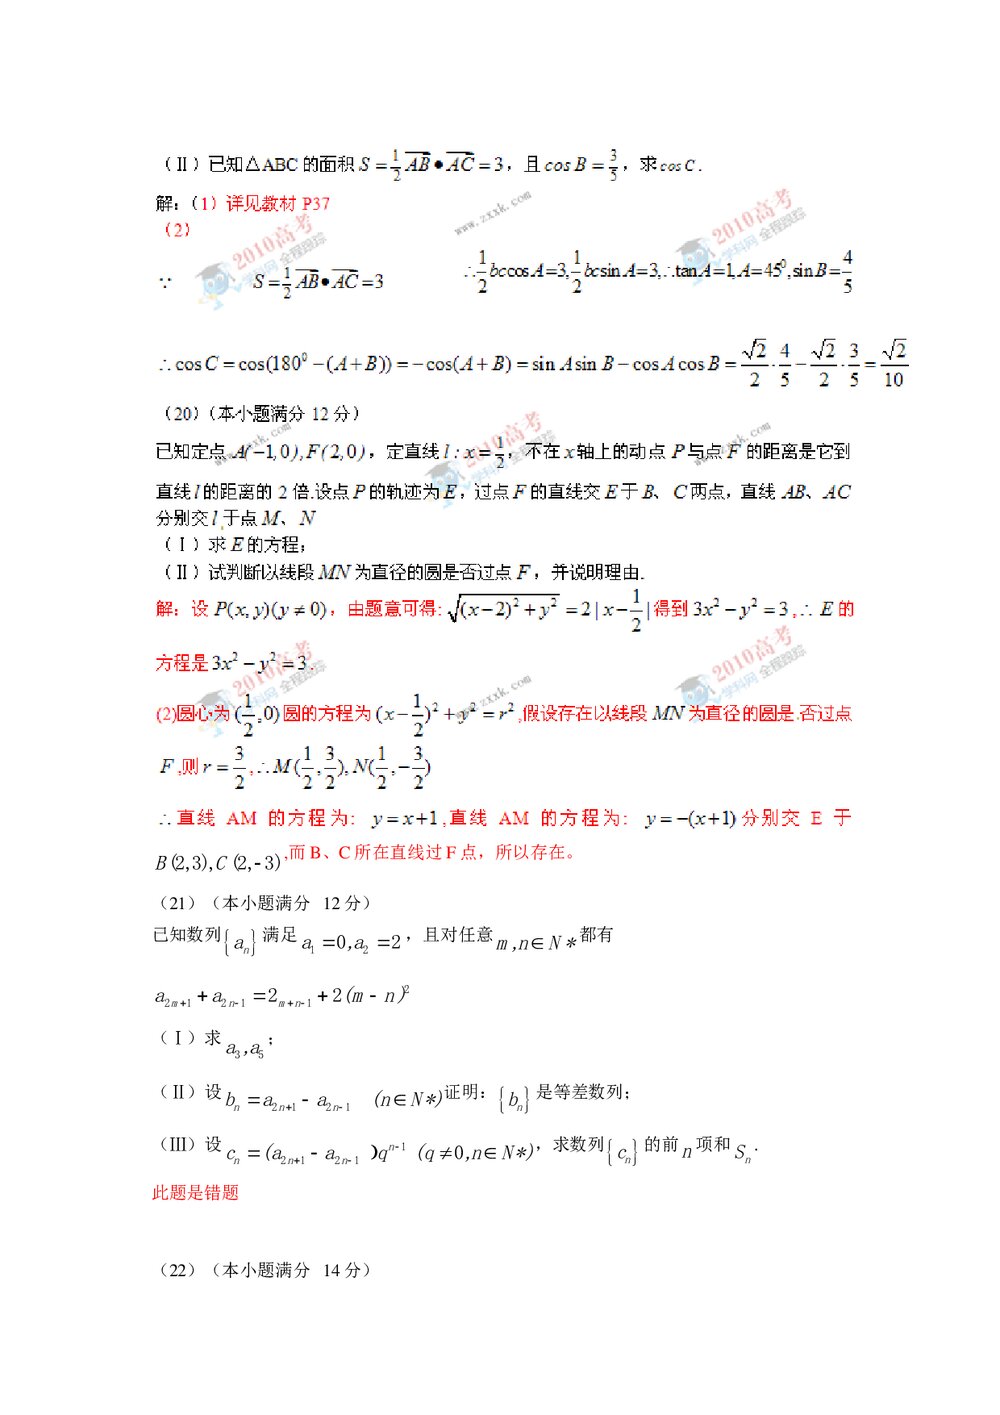 (Ⅱ)已知△ABC的面积 S = 1/2 AB•AC = 3,且 cos B = 3/5,求cos C.
解:(1)详见教材 P37
(2)
∵ S = 1/2 AB•AC = 3 ∴ 1/2 bc cos A=3, 1/2 bc sin A=3,∴tan A=1, A=45⁰, sin B= 4/5
∴ cos C = cos(180⁰ − (A+B)) = −cos(A+B) = sin A sin B − cos A cos B = √2/2 · 4/5 − √2/2 · 3/5 = √2/10
(20)(本小题满分 12 分)
已知定点 A(−1,0),F(2,0),定直线 l : x = 1/2,不在 x 轴上的动点 P 与点 F 的距离是它到
直线 l 的距离的 2 倍.设点 P 的轨迹为 E,过点 F 的直线交 E 于 B、C 两点,直线 AB、AC
分别交 l 于点 M、N
(Ⅰ)求 E 的方程;
(Ⅱ)试判断以线段 MN 为直径的圆是否过点 F,并说明理由.
解:设 P(x, y)(y ≠ 0),由题意可得: √((x−2)² + y²) = 2 | x − 1/2 | 得到 3x² − y² = 3 ,∴ E 的
方程是 3x² − y² = 3.
(2)圆心为 (1/2,0) 圆的方程为 (x − 1/2)² + y² = r² ,假设存在以线段 MN 为直径的圆是.否过点
F ,则 r = 3/2 ,∴ M(1/2, 3/2), N(1/2, −3/2)
∴ 直线 AM 的方程为: y = x+1 ,直线 AM 的方程为: y = −(x+1) 分别交 E 于
B(2,3),C(2,-3) ,而 B、C 所在直线过 F 点,所以存在。
(21)(本小题满分 12 分)
已知数列{aₙ}满足 a₁ = 0, a₂ = 2,且对任意 m,n∈N* 都有
a₂ₘ₊₁ + a₂ₙ₋₁ = 2ₘ₊ₙ₋₁ + 2(m − n)²
(Ⅰ)求 a₃,a₅;
(Ⅱ)设 bₙ = a₂ₙ₊₁ − a₂ₙ₋₁ (n∈N*) 证明:{bₙ}是等差数列;
(Ⅲ)设 cₙ = (a₂ₙ₊₁ − a₂ₙ₋₁)qⁿ⁻¹ (q ≠ 0,n∈N*),求数列{cₙ}的前 n 项和 Sₙ.
此题是错题
(22)(本小题满分 14 分)